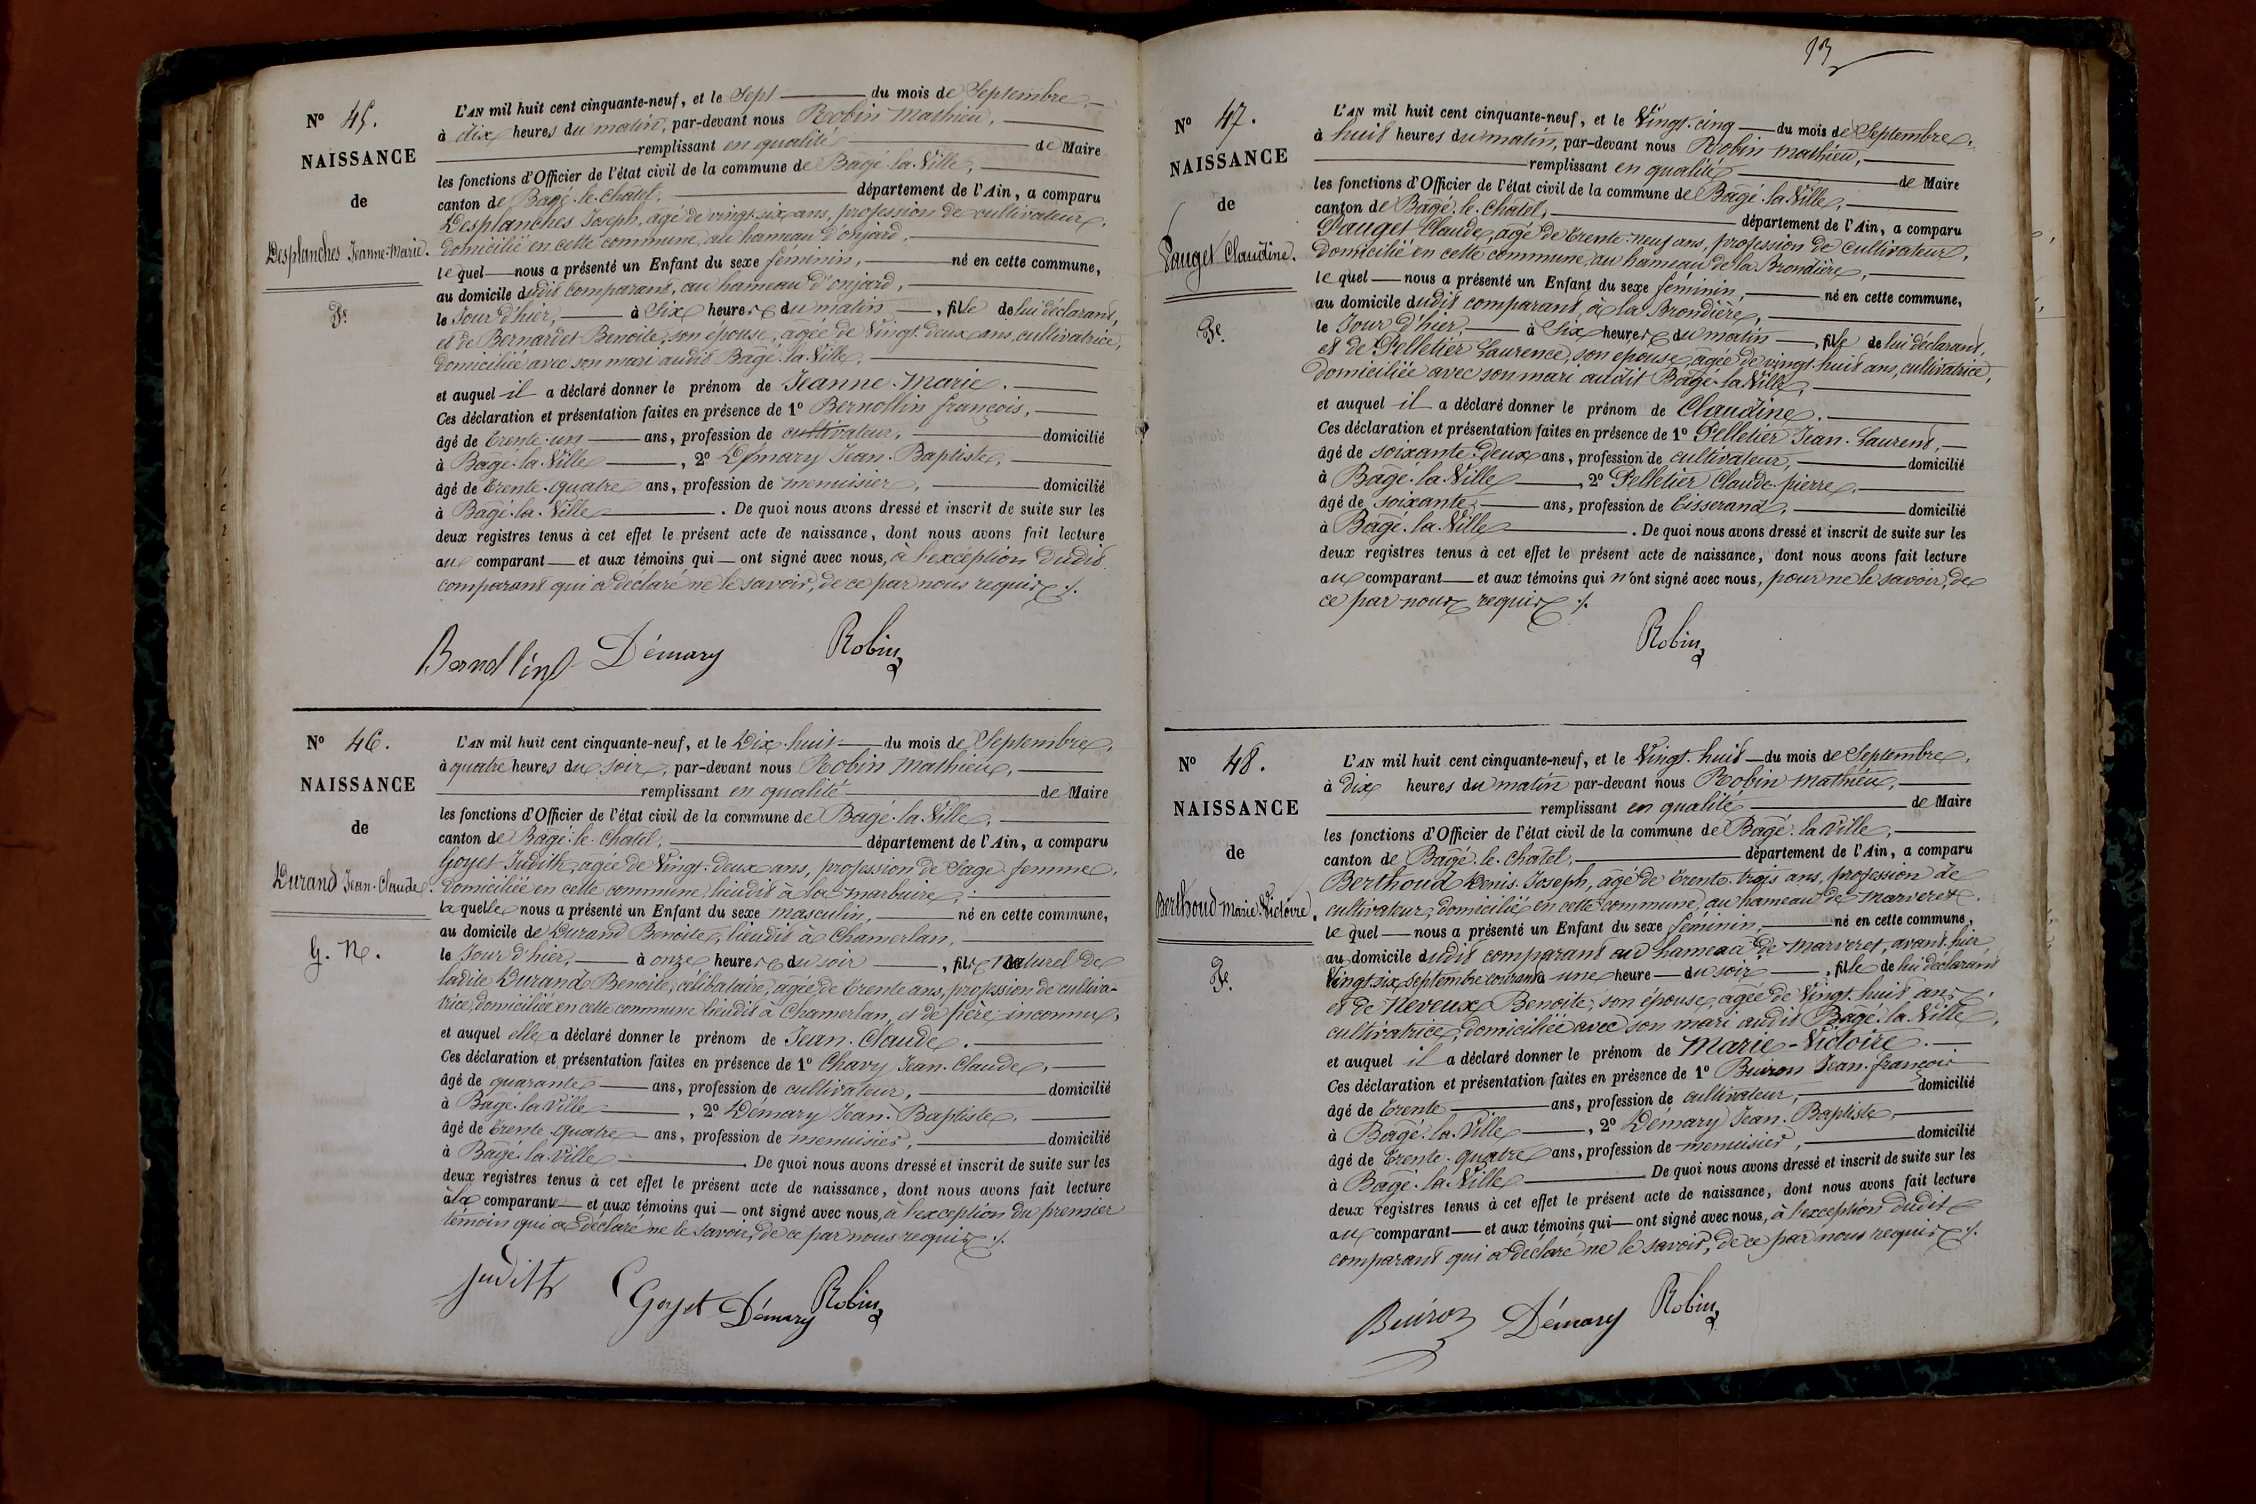 13
N° 45.
NAISSANCE
de
Desplanches Jeanne-Marie.
Fe.
L'AN mil huit cent cinquante-neuf, et le Sept du mois de Septembre,
à dix heures du matin, par-devant nous Robin Mathieu,
remplissant en qualité de Maire
les fonctions d'Officier de l'état civil de la commune de Bâgé-la-Ville,
canton de Bâgé-le-Chatel, département de l'Ain, a comparu
Desplanches Joseph, agé de vingt-six ans, profession de cultivateur,
domicilié en cette commune, au hameau d'onjard,
le quel nous a présenté un Enfant du sexe féminin, né en cette commune,
au domicile dudit comparant, au hameau d'onjard,
le Jour d'hier, à Six heures du matin, fille de lui déclarant,
et de Bernardet Benoite, son épouse, agée de Vingt-deux ans, cultivatrice,
domiciliée avec son mari audit Bâgé-la-Ville,
et auquel il a déclaré donner le prénom de Jeanne-Marie.
Ces déclaration et présentation faites en présence de 1° Bernollin françois,
âgé de trente-un ans, profession de cultivateur, domicilié
à Bâgé-la-Ville, 2° Démary Jean-Baptiste,
âgé de trente-quatre ans, profession de menuisier, domicilié
à Bâgé-la-Ville. De quoi nous avons dressé et inscrit de suite sur les
deux registres tenus à cet effet le présent acte de naissance, dont nous avons fait lecture
au comparant et aux témoins qui ont signé avec nous, à l'exception dudit
comparant qui a déclaré ne le savoir, de ce par nous requis ./.
Démary Robin
N° 46.
NAISSANCE
de
Durand Jean-Claude.
G. N.
L'AN mil huit cent cinquante-neuf, et le Dix-huit du mois de Septembre,
à quatre heures du soir, par-devant nous Robin Mathieu,
remplissant en qualité de Maire
les fonctions d'Officier de l'état civil de la commune de Bâgé-la-Ville,
canton de Bâgé-le-Chatel, département de l'Ain, a comparu
Goyet Judith, agée de Vingt-deux ans, profession de Sage-femme,
domiciliée en cette commune, lieudit à la marbuire,
la quelle nous a présenté un Enfant du sexe masculin, né en cette commune,
au domicile de Durand Benoite, lieudit à Chamerlan,
le Jour d'hier, à onze heures du soir, fils naturel de
ladite Durand Benoite, célibataire, agée de trente ans, profession de cultiva-
trice, domiciliée en cette commune lieudit à Chamerlan, et de père inconnu,
et auquel elle a déclaré donner le prénom de Jean-Claude.
Ces déclaration et présentation faites en présence de 1° Chavy Jean-Claude,
âgé de quarante ans, profession de cultivateur, domicilié
à Bâgé-la-Ville, 2° Démary Jean-Baptiste,
âgé de trente-quatre ans, profession de menuisier, domicilié
à Bâgé-la-Ville. De quoi nous avons dressé et inscrit de suite sur les
deux registres tenus à cet effet le présent acte de naissance, dont nous avons fait lecture
à la comparante et aux témoins qui ont signé avec nous, à l'exception du premier
témoin qui a déclaré ne le savoir, de ce par nous requis ./.
Judith Goyet Démary Robin
N° 47.
NAISSANCE
de
Pauget Claudine.
Fe.
L'AN mil huit cent cinquante-neuf, et le Vingt-cinq du mois de Septembre,
à huit heures du matin, par-devant nous Robin Mathieu,
remplissant en qualité de Maire
les fonctions d'Officier de l'état civil de la commune de Bâgé-la-Ville,
canton de Bâgé-le-Chatel, département de l'Ain, a comparu
Pauget Claude, agé de trente-neuf ans, profession de cultivateur,
domicilié en cette commune, au hameau de la Brondière,
le quel nous a présenté un Enfant du sexe féminin, né en cette commune,
au domicile dudit comparant, à la Brondière,
le Jour d'hier, à Six heures du matin, fille de lui déclarant,
et de Pelletier Laurence, son epouse, agée de vingt-huit ans, cultivatrice,
domiciliée avec son mari audit Bâgé-la-Ville,
et auquel il a déclaré donner le prénom de Claudine.
Ces déclaration et présentation faites en présence de 1° Pelletier Jean-Laurent,
âgé de soixante-deux ans, profession de cultivateur, domicilié
à Bâgé-la-Ville, 2° Pelletier Claude-pierre,
âgé de soixante ans, profession de Tisserand, domicilié
à Bâgé-la-Ville. De quoi nous avons dressé et inscrit de suite sur les
deux registres tenus à cet effet le présent acte de naissance, dont nous avons fait lecture
au comparant et aux témoins qui n'ont signé avec nous, pour ne le savoir, de
ce par nous requis ./.
Robin
N° 48.
NAISSANCE
de
Berthoud Marie Victoire.
Fe.
L'AN mil huit cent cinquante-neuf, et le Vingt-huit du mois de Septembre,
à Dix heures du matin par-devant nous Robin Mathieu,
remplissant en qualité de Maire
les fonctions d'Officier de l'état civil de la commune de Bâgé-la-Ville,
canton de Bâgé-le-Chatel, département de l'Ain, a comparu
Berthoud Denis-Joseph, agé de trente-trois ans, profession de
cultivateur, domicilié en cette commune, au hameau de Marveret.
le quel nous a présenté un Enfant du sexe féminin, né en cette commune,
au domicile dudit comparant au hameau de Marveret, avant-hier
Vingt-six septembre courant à une heure du soir, fille de lui déclarant
et de Neveux Benoite, son épouse, agée de Vingt-huit ans,
cultivatrice, domiciliée avec son mari audit Bâgé-la-Ville,
et auquel il a déclaré donner le prénom de Marie-Victoire.
Ces déclaration et présentation faites en présence de 1° Buiron Jean-françois
âgé de trente ans, profession de cultivateur, domicilié
à Bâgé-la-Ville, 2° Démary Jean-Baptiste,
âgé de trente-quatre ans, profession de menuisier, domicilié
à Bâgé-la-Ville. De quoi nous avons dressé et inscrit de suite sur les
deux registres tenus à cet effet le présent acte de naissance, dont nous avons fait lecture
au comparant et aux témoins qui ont signé avec nous, à l'exception dudit
comparant qui a déclaré ne le savoir, de ce par nous requis ./.
Buiron Démary Robin